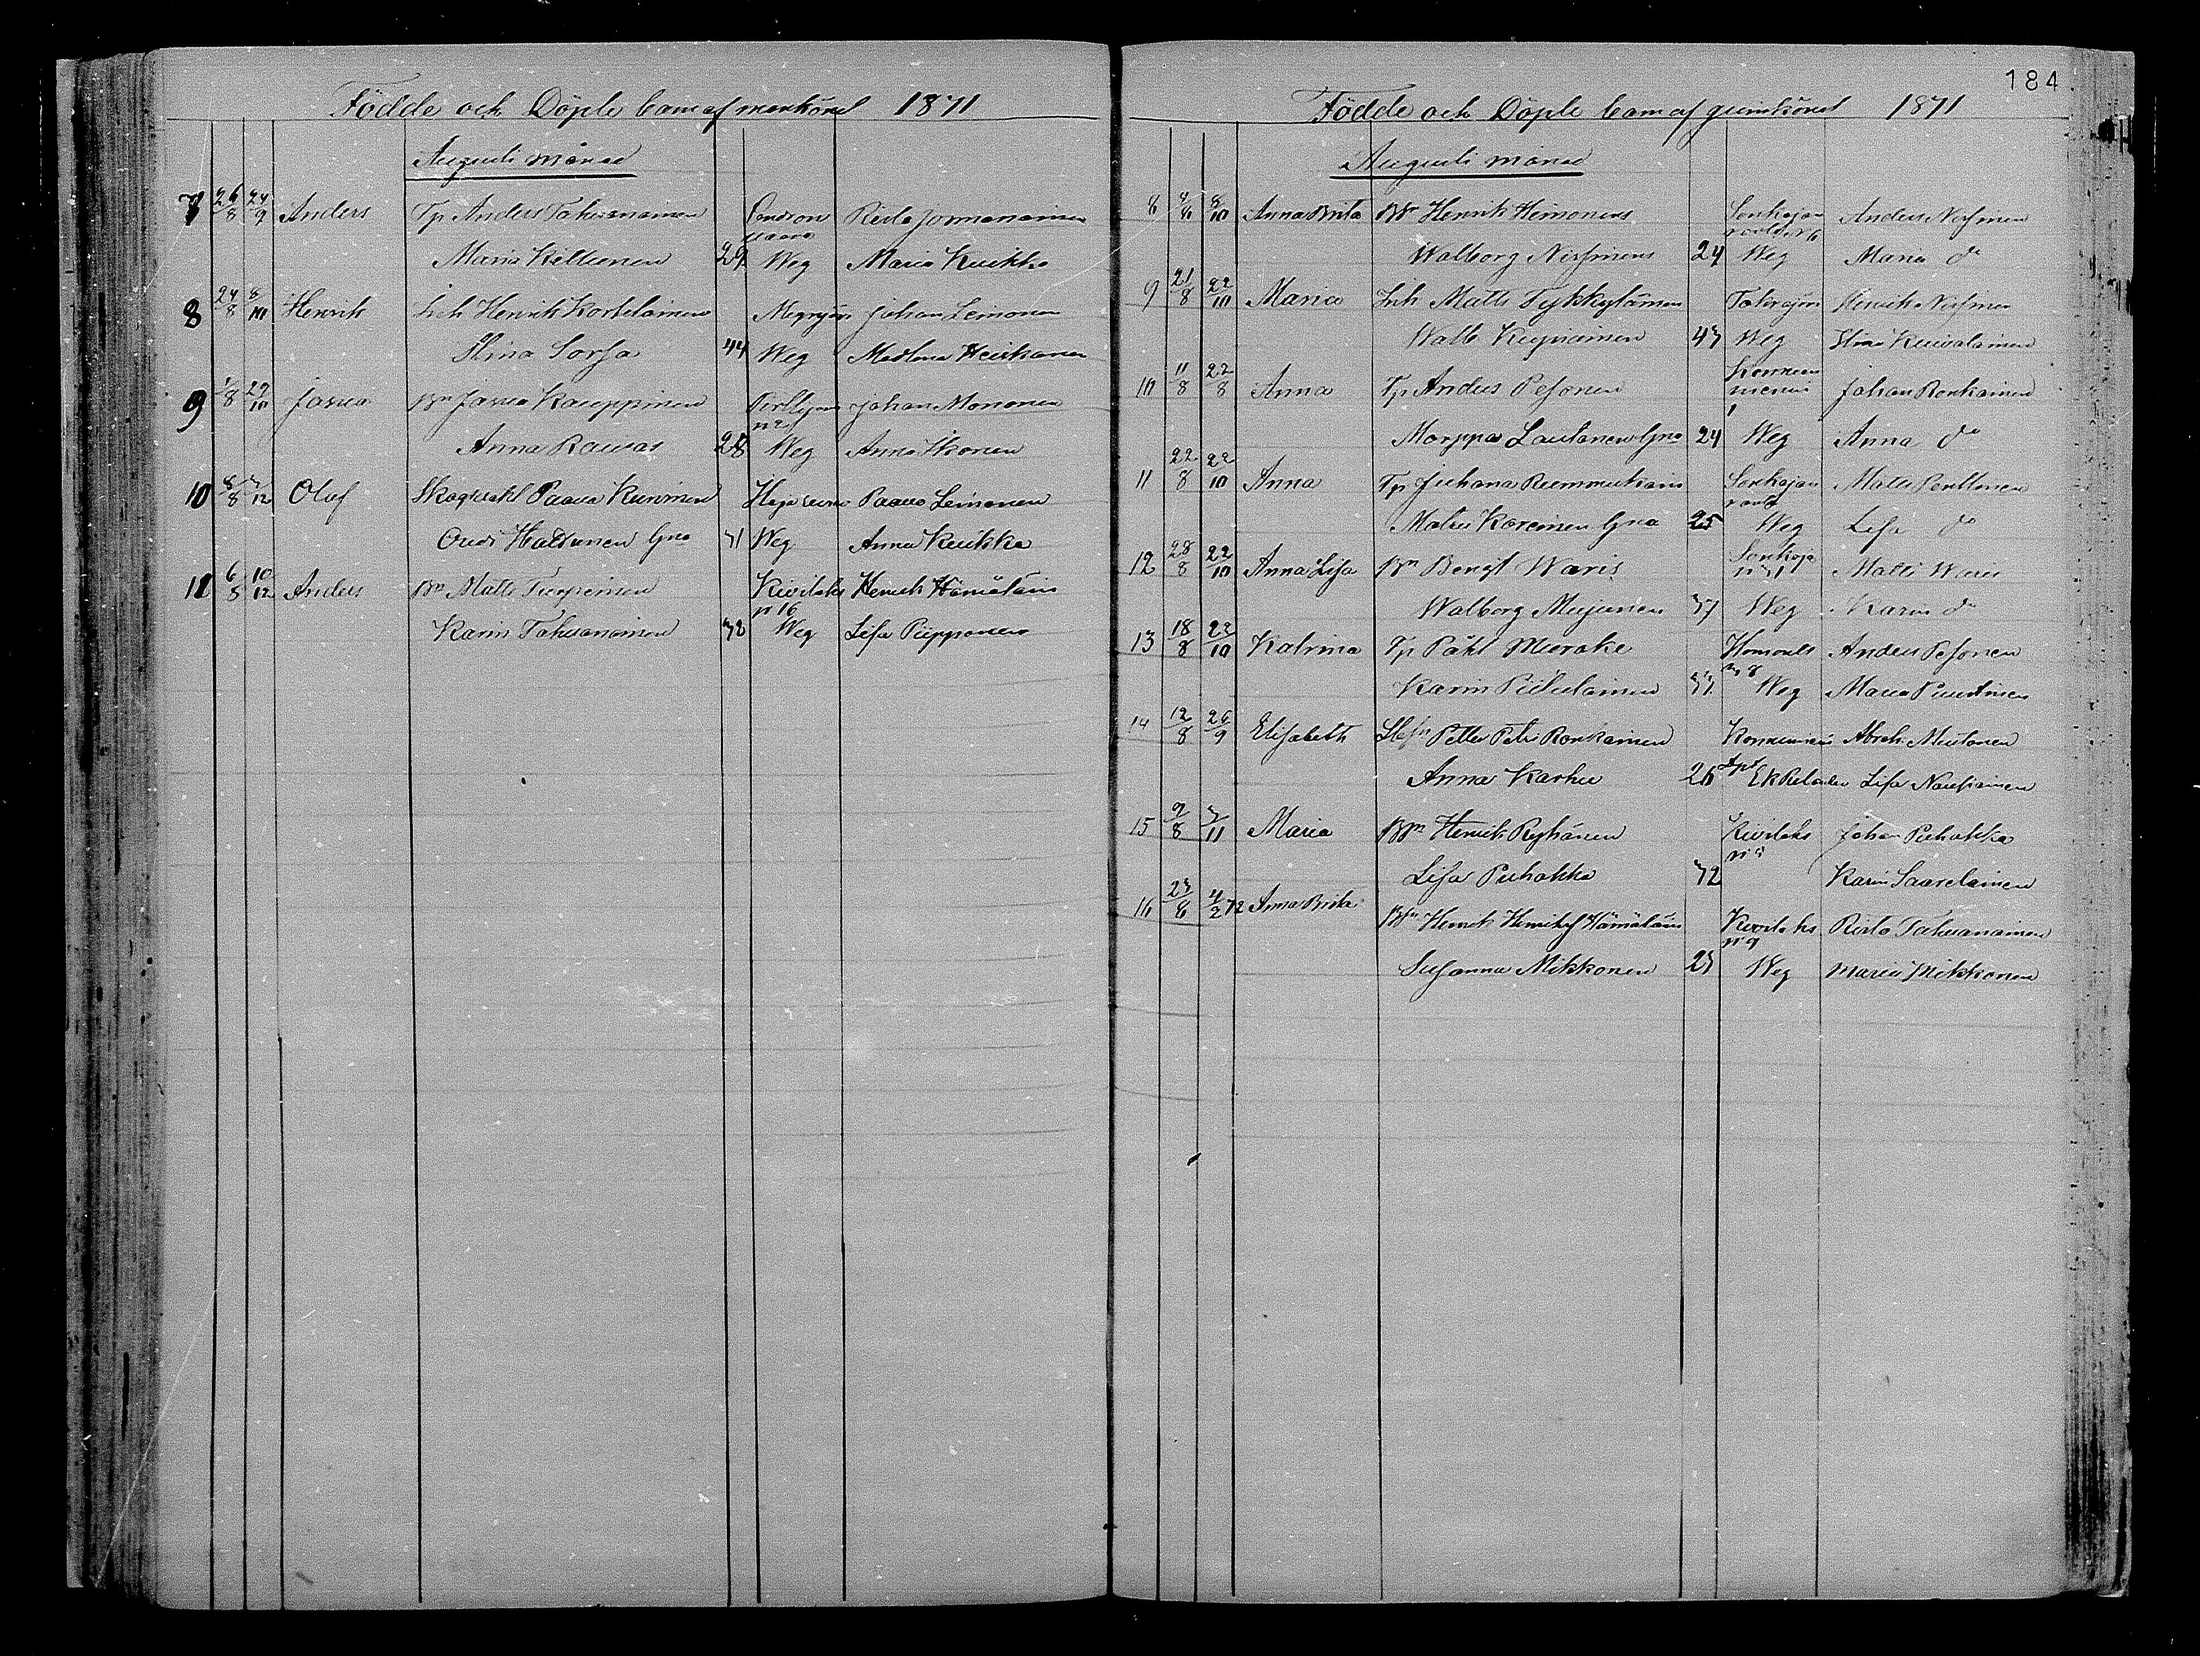 184
Födde och Döpte barn af mankönet 1871
Augusti månad
7 26/8 24/9 Anders Tp Anders Tahvanainen Riita Jormanainen
Maria Kettunen 29 Weg Maria Kuikka
8 24/8 8/10 Henrik Inh Henrik Kortelainen Johan Leinonen
Stina Sorsa 44 Weg Madlena Heiskanen
9 1/8 29/10 Josua Bn Josua Kauppinen Johan Mononen
Anna Rausas 28 Weg Anna Ikonen
10 8/8 3/12 Oluf Skogvakt Paavo Kuvinen Paavo Leinonen
Hattunen Gna 31 Weg Anna Kuikka
11 6/8 10/12 Anders Bn Matts Turpeinen Kivilaks Henrik Hämäläin
Karin Tahvanainen 38 n 16 Weg Lisa Piipponen
Födde och Döpte barn af qvinkönet 1871
Augusti månad
8 4/8 8/10 Anna Brita Bn Henrik Heinonen Sonkajan Anders Nissinen
Walborg Nissinen 24 Weg Maria do
9 21/8 22/10 Maria Inh Matts Tykkyläinen Henrik Nissinen
Walb Kupiainen 43 Weg Stina Kuivalainen
10 11/8 22/8 Anna Tp Anders Pesonen Johan Ronkainen
Marppa Lautanen Gna 24 Weg Anna do
11 22/8 22/10 Anna Tp Juhana Matts Penttonen
Korninen Gna 25 Weg Lisa do
12 28/8 22/10 Anna Lisa Bn Bengt Waris Sonkaja n 31 Matts Waris
Walborg Mujunen 37 Weg Karin do
13 18/8 23/10 Katrina Tp Påhl Anders Pesonen
Karin Piitulainen 37 n 8 Weg Maria Puustinen
14 12/8 26/9 Elisabeth Petter Petr Ronkainen Abrah. Mustonen
Anna Karhu 26 Lisa
15 9/8 3/11 Maria Bn Henrik Ryhänen Kivilaks Johan Puhakka
Lisa Puhakka 32 Karin Saarelainen
16 23/8 4/2 72 Anna Brita Henrik Henriksf Hämäläin Kivilaks n 9 Riita Tahvanainen
Susanna Mikkonen 23 Weg Maria Mikkonen